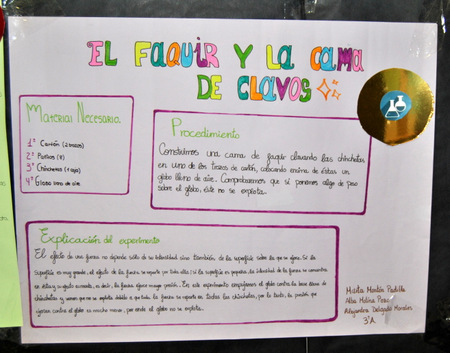 EL FAQUIR Y LA CAMA
DE CLAVOS
Material Necesario.
1º Cartón (2 trozos)
2º Palillos (8)
3º Chinchetas (1 caja)
4º Globo lleno de aire
Procedimiento
Construimos una cama de faquir clavando las chinchetas,
en uno de los trozos de cartón, colocando encima de éstas un
globo lleno de aire. Comprobaremos que si ponemos algo de peso
sobre el globo, éste no se explota.
Explicación del experimento
El efecto de una fuerza no depende sólo de su intensidad sino también de la superficie sobre la que se ejerce. Si la
superficie es muy grande, el efecto de la fuerza se reparte por toda ella; si la superficie es pequeña la intensidad de la fuerza se concentra
en ella y su efecto aumenta, es decir, la fuerza ejerce mayor presión. En este experimento empujamos el globo contra la base llena de
chinchetas y vemos que no se explota debido a que toda la fuerza se reparte en todas las chinchetas, por lo tanto, la presión que
ejercen contra el globo es mucho menor, por ende el globo no se explota.
Marta Martín Padilla
Alba Molina
Alejandra Delgado Morales
3ºA